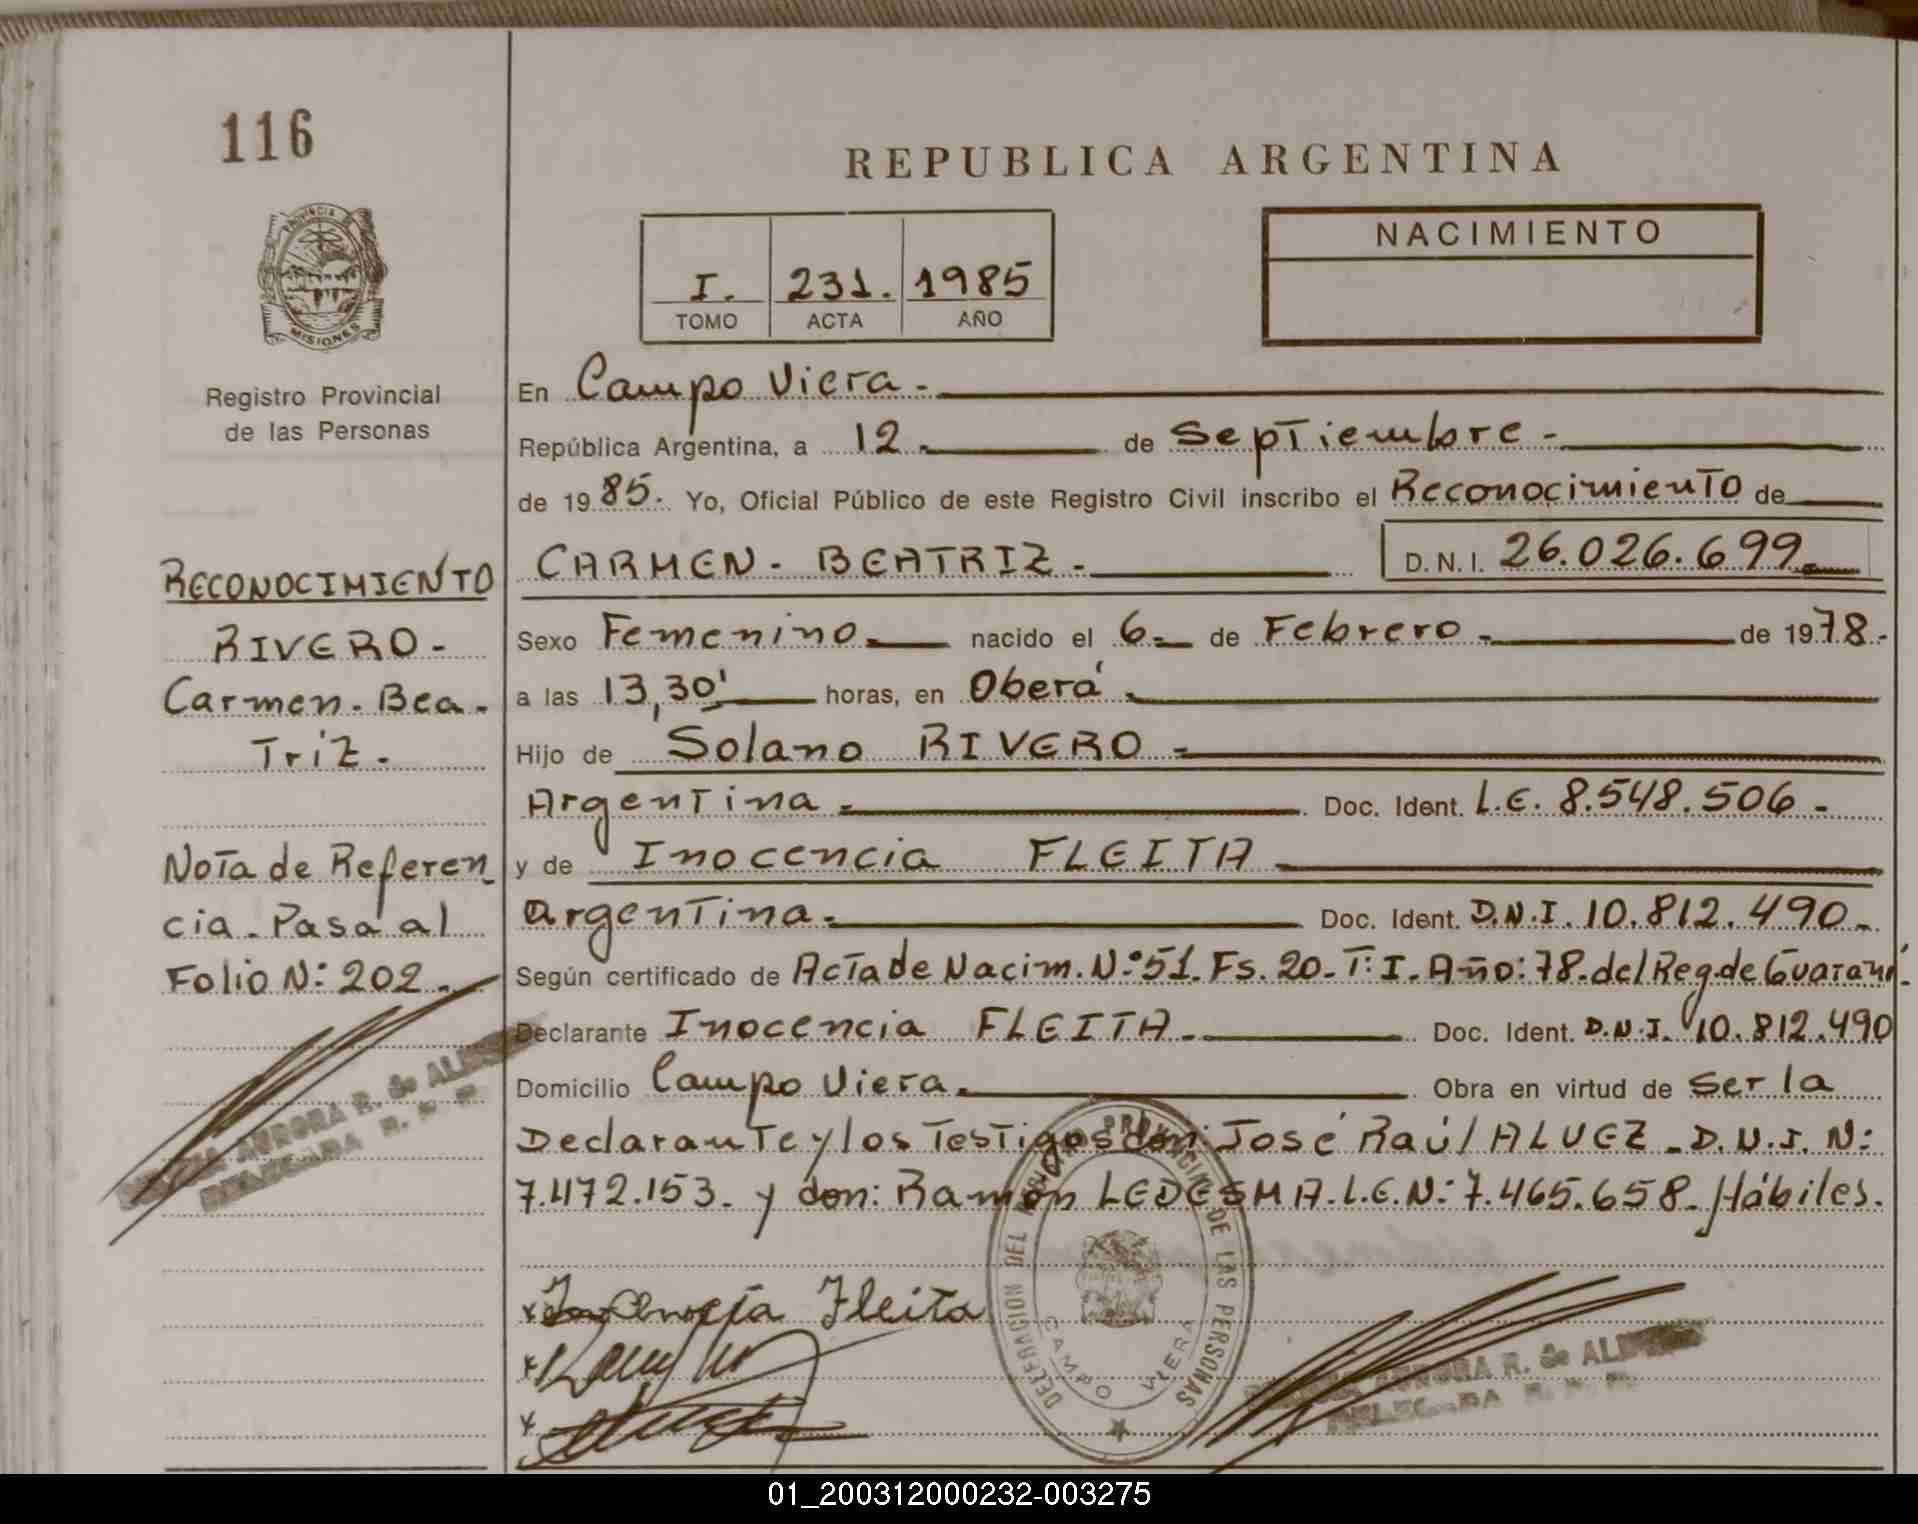 116
REPUBLICA ARGENTINA
PROVINCIA DE
MISIONES
Registro Provincial
de las Personas
I. 231. 1985
TOMO ACTA AÑO
NACIMIENTO
En Campo Viera.
República Argentina, a 12. de Septiembre -
de 1985. Yo, Oficial Público de este Registro Civil inscribo el Reconocimiento de
CARMEN. BEATRIZ. D.N.I. 26.026.699
Sexo Femenino. nacido el 6. de Febrero. de 1978.-
a las 13,30' horas, en Oberá.
Hijo de Solano RIVERO -
Argentina. Doc. Ident. L.E. 8.548.506 -
y de Inocencia FLEITA
argentina. Doc. Ident. D.N.I. 10.812.490-
Según certificado de Acta de Nacim. N:º51. Fs. 20. T: I. Año: 78. del Reg. de Guaraní.
Declarante Inocencia FLEITA. Doc. Ident. D.N.I. 10.812.490
Domicilio Campo Viera. Obra en virtud de Ser la
Declarante y los Testigos don: José Raúl ALVEZ - D.N.I. N:
7.472.153. y don: Ramón LEDESMA. L.E.N: 7.465.658. Hábiles.
Fleita
RECONOCIMIENTO
RIVERO-
Carmen. Bea-
Triz.
Nota de Referen
cia. Pasa al
Folio N: 202.
AURORA R. de
DELEGADA R. P. P.
DEL REGISTRO PROVINCIAL DE LAS PERSONAS
CAMPO VIERA
AURORA R. de
DELEGADA R. P. P.
01_200312000232-003275